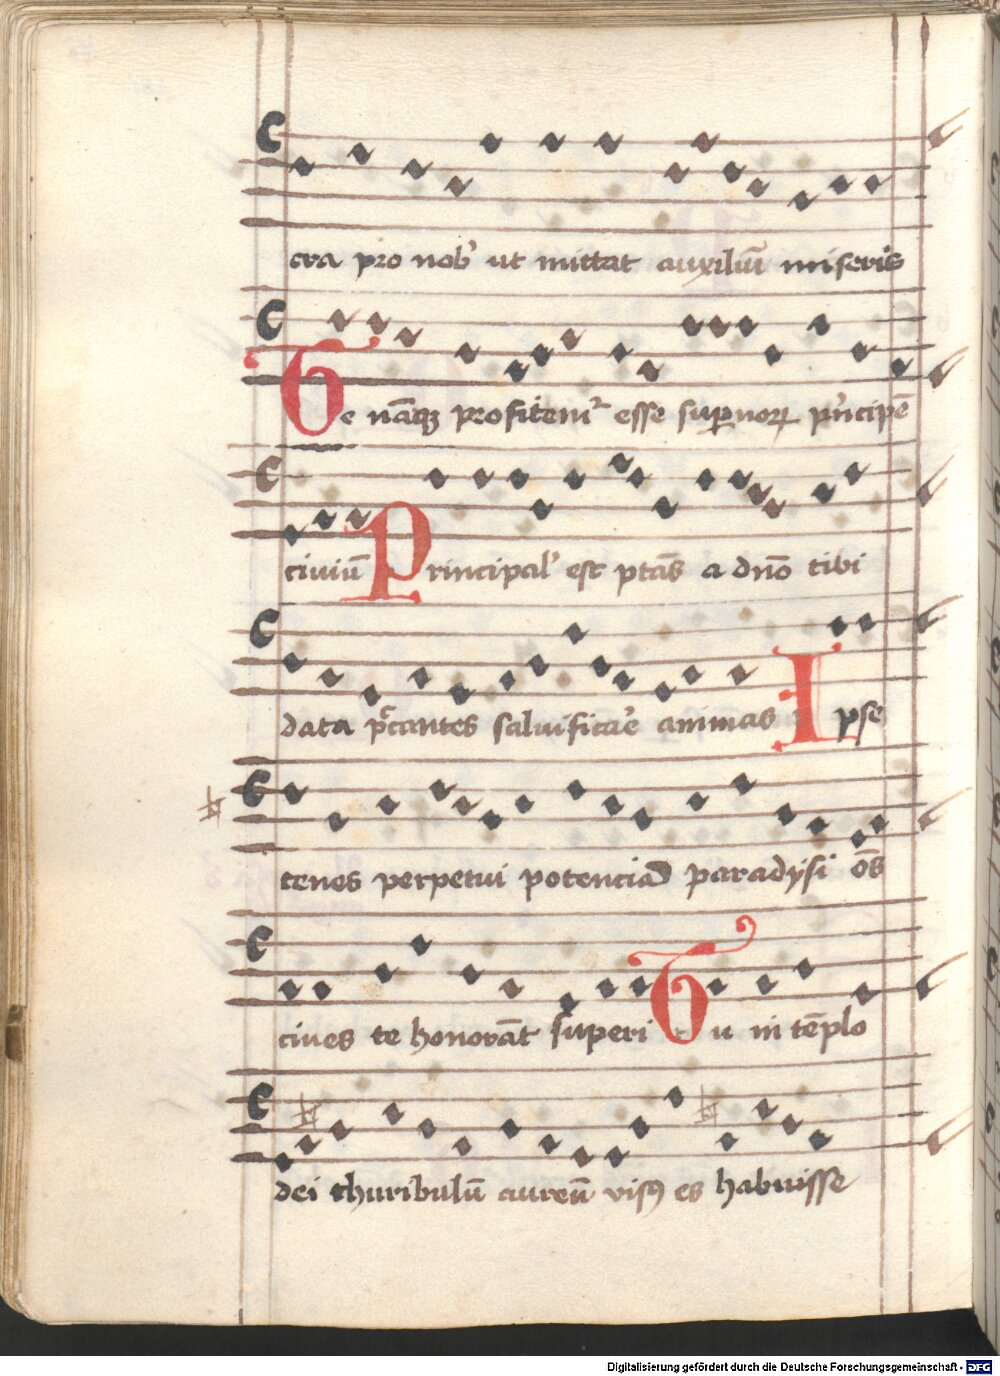 cra pro nob' ut mittat auxiliū miseris
Te nāq3 profitem' esse supnoꝝ pͥncipē
ciuiū Principal' est ptās a dn̄o tibi
data pͨcantes saluificāe animas Ipse
tenes perpetui potencia paradysi ōs
ciues te honorāt superi Tu in tēplo
dei thuribulū aureū visꝰ es habuisse
Digitalisierung gefördert durch die Deutsche Forschungsgemeinschaft - DFG